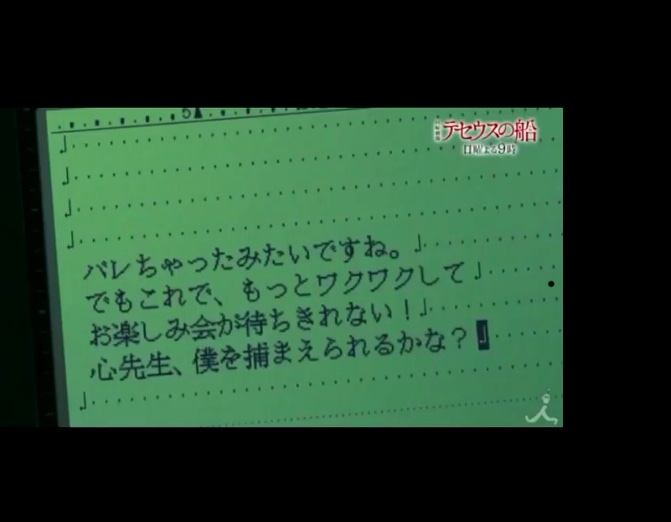 テセウスの船
日曜よる9時
5
バレちゃったみたいですね。
でもこれで、もっとワクワクして
お楽しみ会が待ちきれない！
心先生、僕を捕まえられるかな？